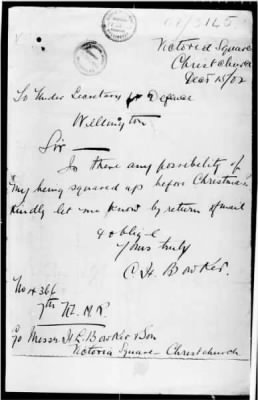 02/3165
Victoria Square
Christchurch
Decr 15/02
To Under Secretary for Defence
Wellington
Sir
Is there any possibility of
my being squared up before Christmas
Kindly let me know by return of mail
& oblige
Yours truly
C H. Bowker.
No 4366
7th N.Z. M.R.
C/o Messrs H.G. Bowker & Son
Victoria Square Christchurch